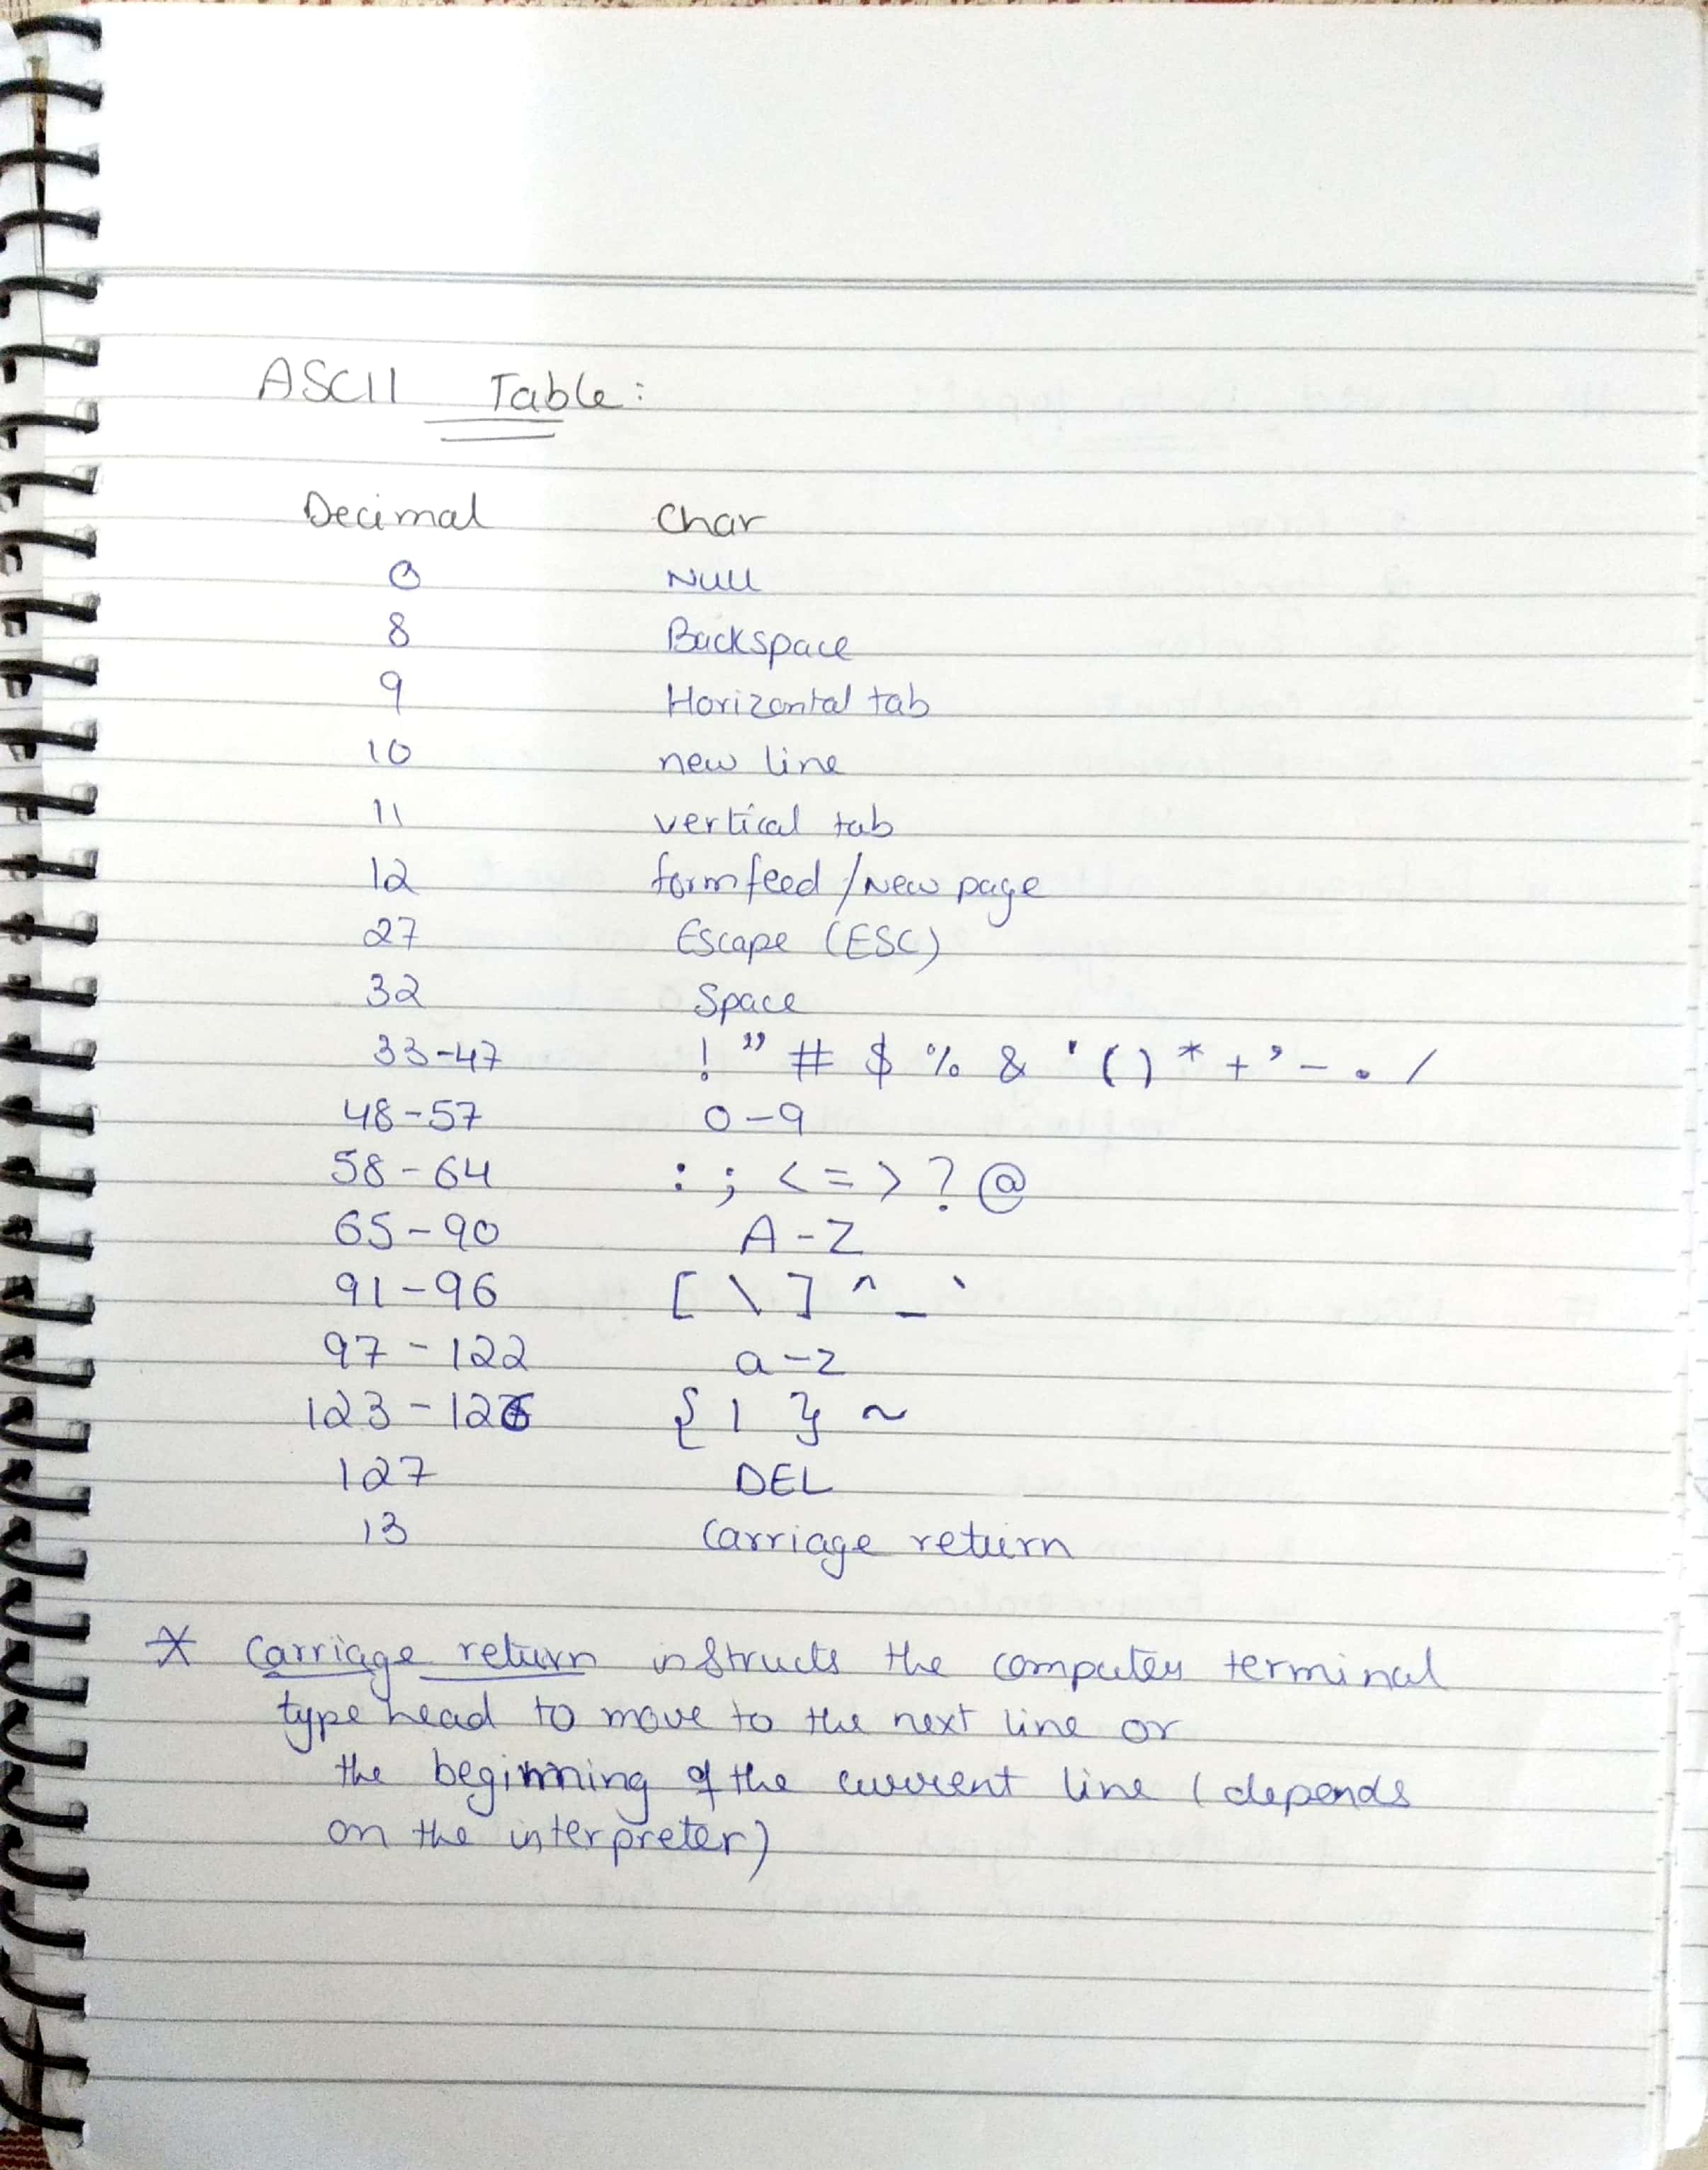 ASCII Table:
Decimal Char
0 Null
8 Backspace
9 Horizontal tab
10 new line
11 vertical tab
12 formfeed /New page
27 Escape (ESC)
32 Space
33-47 ! " # $ % & ' ( ) * + ' - . /
48-57 0-9
58-64 : ; < = > ? @
65-90 A-Z
91-96 [ \ ] ^ _ `
97-122 a-z
123-126 { | } ~
127 DEL
13 Carriage return
* Carriage return instructs the computer terminal
type head to move to the next line or
the beginning of the current line (depends
on the interpreter)